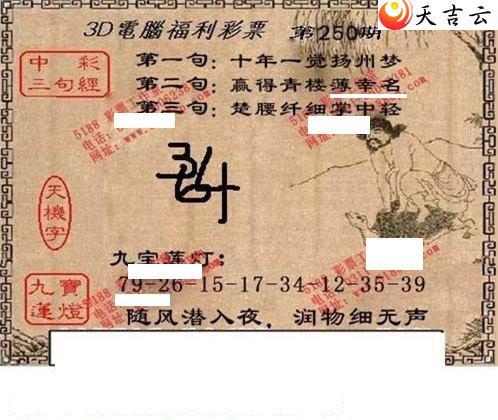 天吉云
3D電腦福利彩票 第250期
中彩
三句經
第一句：十年一觉扬州梦
第二句：赢得青楼薄幸名
第三句：楚腰纤细掌中轻
天機字
九宝莲灯：
九寶
蓮燈
79-26-15-17-34, 12-35-39
随风潜入夜，润物细无声